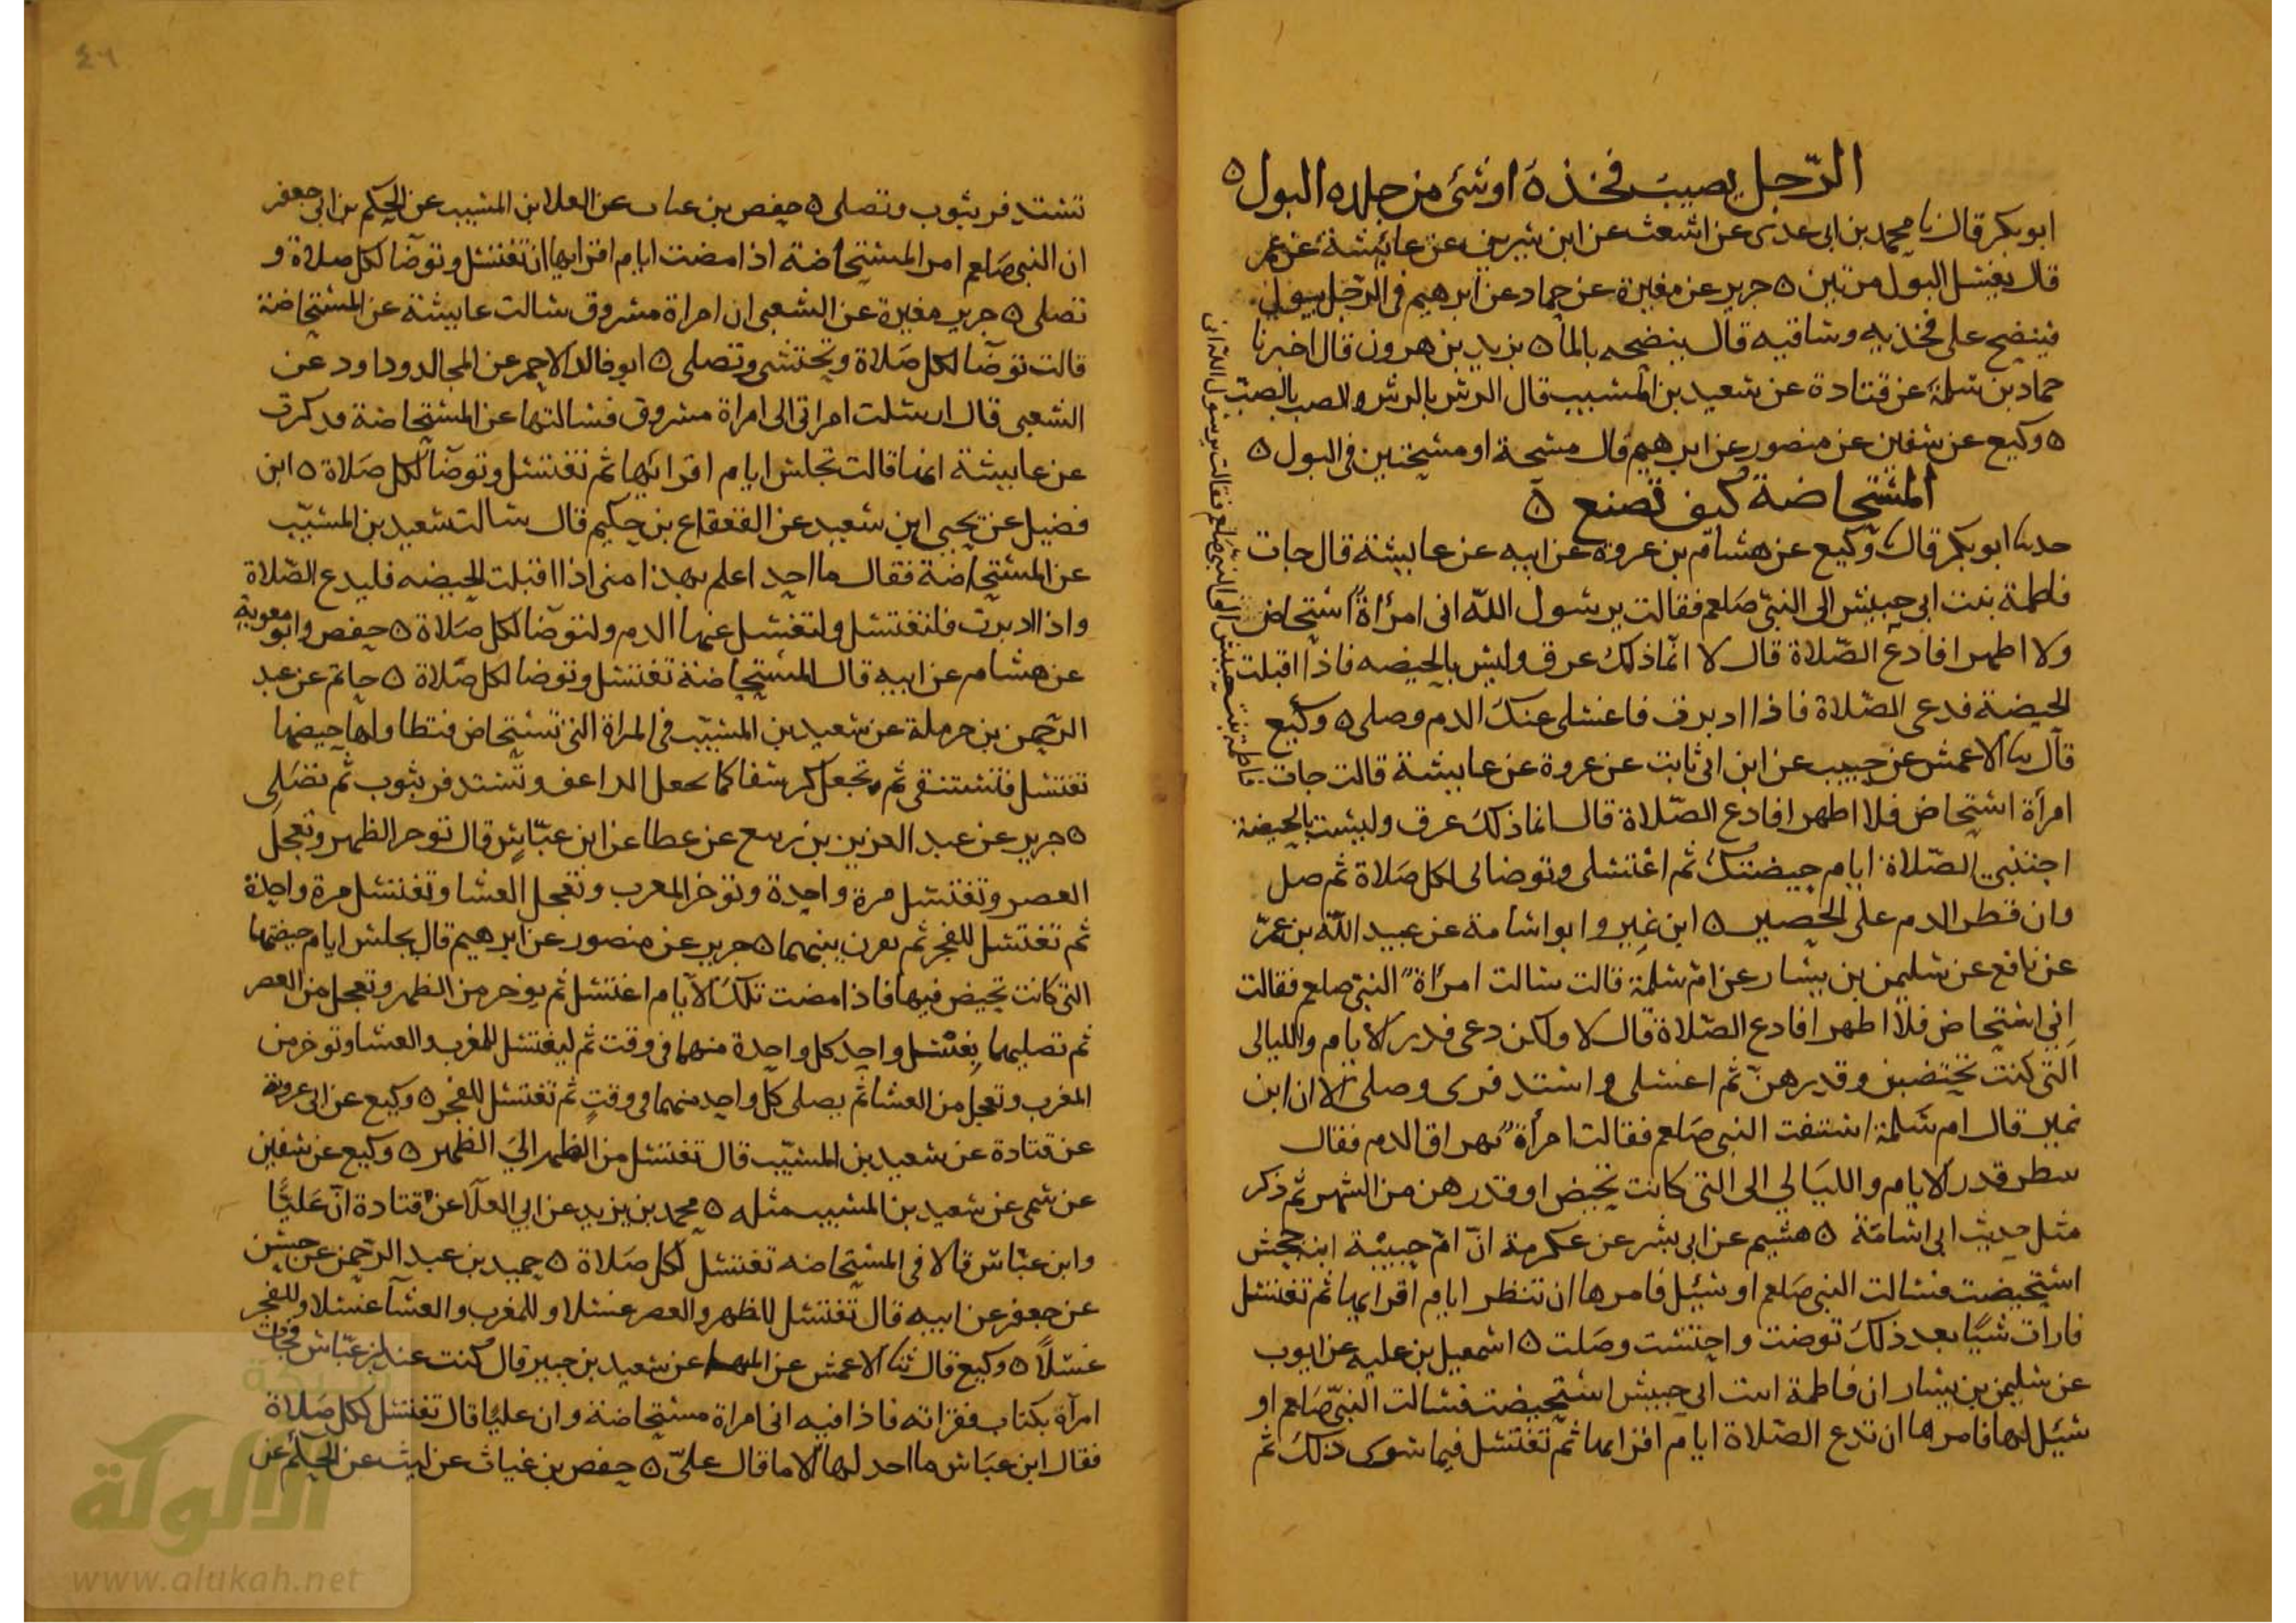 الرّجل يصيب فخذه او شئ من جلده البول ه
ابو بكر قال نا محمد بن ابى عدى عن اشعث عن ابن سيرين عن عائشة عن عمر
قال يغسل البول مرتين ه جرير عن مغيرة عن حماد عن ابرهيم فى الرّجل يبول
فينضح على فخذيه وساقيه قال ينضحه بالما ه يزيد بن هرون قال اخبرنا
حماد بن سلمة عن قتادة عن سعيد بن المسيب قال الرش بالرش والصب بالصب
ه وكيع عن سفين عن منصور عن ابرهيم قال مسحة او مسحتين فى البول ه
المستحاضة كيف تصنع ه
حدثنا ابو بكر قال نا وكيع عن هشام بن عروة عن ابيه عن عايشة قال جات
فاطمة بنت ابى حبيش الى النبىّ صلعم فقالت يرسول اللّه انى امرأةٌ استحاض
ولا اطهر افادع الصّلاة قال لا انّما ذلك عرق وليس بالحيضه فاذا اقبلت
الحيضة فدعى الصّلاة فاذا ادبرت فاغسلى عنك الدم وصلى ه وكيع
قال نا الاعمش عن حبيب عن ابن ابى ثابت عن عروة عن عايشة قالت جات
فاطمة بنت حبيش الى النبى صلعم فقالت يرسول اللّه انى
امرأة استحاض فلا اطهر افادع الصّلاة قال انما ذلك عرق وليست بالحيضة
اجتنبى الصّلاة ايام حيضتك ثم اغتسلى وتوضاى لكل صلاة ثم صل
وان قطر الدم على الحصير ه ابن نمير وابو اسامة عن عبيد اللّه بن عمر
عن نافع عن سليمن بن يسار عن امّ سلمة قالت سالت امرأةٌ النبىّ صلعم فقالت
اِنى استحاض فلا اطهر افادع الصّلاة قال لا ولكن دعى قدر الايام والليالى
التى كنت تحيضين وقدرهنّ ثم اغتسلى واستدفرى وصلى الا ان ابن
نمير قال ام سلمة استفتت النبى صلعم فقالت امرأةٌ تهراق الدم فقال
تنظر قدر الايام والليالي الى التى كانت تحيض او قدرهن من الشهر ثم ذكر
مثل حديث ابى اسامة ه هشيم عن ابى بشر عن عكرمة انّ امّ حبيبة ابنة جحش
استحيضت فسالت النبى صلعم او سئل فامرها ان تنظر ايام اقرايها ثم تغتسل
فان رات شيًا بعد ذلك توضت واحتشت وصلت ه اسمعيل بن عليه عن ايوب
عن سليمن بن يسار ان فاطمة ابنت ابى حبيش استحيضت فسالت النبىّ صلعم او
سُئل لها فامرها ان تدع الصّلاة ايام اقرايها ثم تغتسل فيما سوى ذلك ثم
تستدفر بثوب وتصلى ه حفص بن غياث عن العلا ابن المسيب عن الحكم عن ابى جعفر
ان النبى صلعم امر المستحاضة اذا مضت ايام اقرايها ان تغتسل وتوضا لكل صلاة و
تصلى ه جرير مغيرة عن الشعبى ان امراة مسروق سالت عايشة عن المستحاضة
قالت توضا لكل صلاة وتحتشى وتصلى ه ابو خالد الاحمر عن المجالد وداود عن
الشعبى قال ارسلت امراتى الى امراة مسروق فسالتها عن المستحاضة فذكرت
عن عايشة انها قالت تجلس ايام اقرائها ثم تغتسل وتوضا لكل صلاة ه ابن
فضيل عن يحيى ابن سعيد عن القعقاع بن حكيم قال سالت سعيد بن المسيّب
عن المستحاضة فقال ما احد اعلم بهذا منى اذا اقبلت الحيضه فليدع الصّلاة
واذا ادبرت فلتغتسل ولتغسل عنها الدم ولتوضا لكل صلاة ه حفص وابو معوية
عن هشام عن ابيه قال المستحاضة تغتسل وتوضا لكل صلاة ه حاتم عن عبد
الرّحمن بن حرملة عن سعيد بن المسيّب فى المراة التى تستحاض فتطاولها حيضها
تغتسل فلتستنقى ثم تجعل كرسفا كما يجعل الراعف وتستدفر بثوب ثم تصلى
ه جرير عن عبد العزيز بن رفيع عن عطا عن ابن عبّاس قال توخر الظهر وتعجل
العصر وتغتسل مرة واحدة وتوخر المغرب وتعجل العشا وتغتسل مرة واحدة
ثم تغتسل للفجر ثم تقرن بينهما ه جرير عن منصور عن ابرهيم قال يجلس ايام حيضتها
التى كانت تحيض فيها فاذا مضت تلك الايام اغتسل ثم يوخر من الظهر وتعجل من العصر
ثم تصليهما بغسل واحد كل واحدة منهما فى وقت ثم ليغتسل للمغرب والعشا وتوخر من
المغرب وتعجل من العشا ثم يصلى كل واحد منهما فى وقت ثم تغتسل للفجر ه وكيع عن ابى عروبة
عن قتادة عن سعيد بن المسيّب قال تغتسل من الظهر الي الظهر ه وكيع عن سفين
عن سمى عن سعيد بن المسيب مثله ه محمد بن يزيد عن ابي العلا عن قتادة انّ عليًّا
وابن عبّاس قالا فى المستحاضه تغتسل لكل صلاة ه حميد بن عبد الرّحمن عن حسن
عن جعفر عن ابيه قال تغتسل للظهر والعصر غسلا وللمغرب والعشآ غسلا وللفجر
غسلاً ه وكيع قال ثنا الاعمش عن المنهال عن سعيد بن جبير قال كنت عند ابن عبّاس فجات
امرآة بكتاب فقراته فاذا فيه انى امراة مستحاضة وان عليًا قال تغتسل لكل صلاة
فقال ابن عبّاس ما احد لها الا ما قال علىّ ه حفص بن غياث عن ليث عن الحكم عن
٤٦
شبكة
الألوكة
www.alukah.net